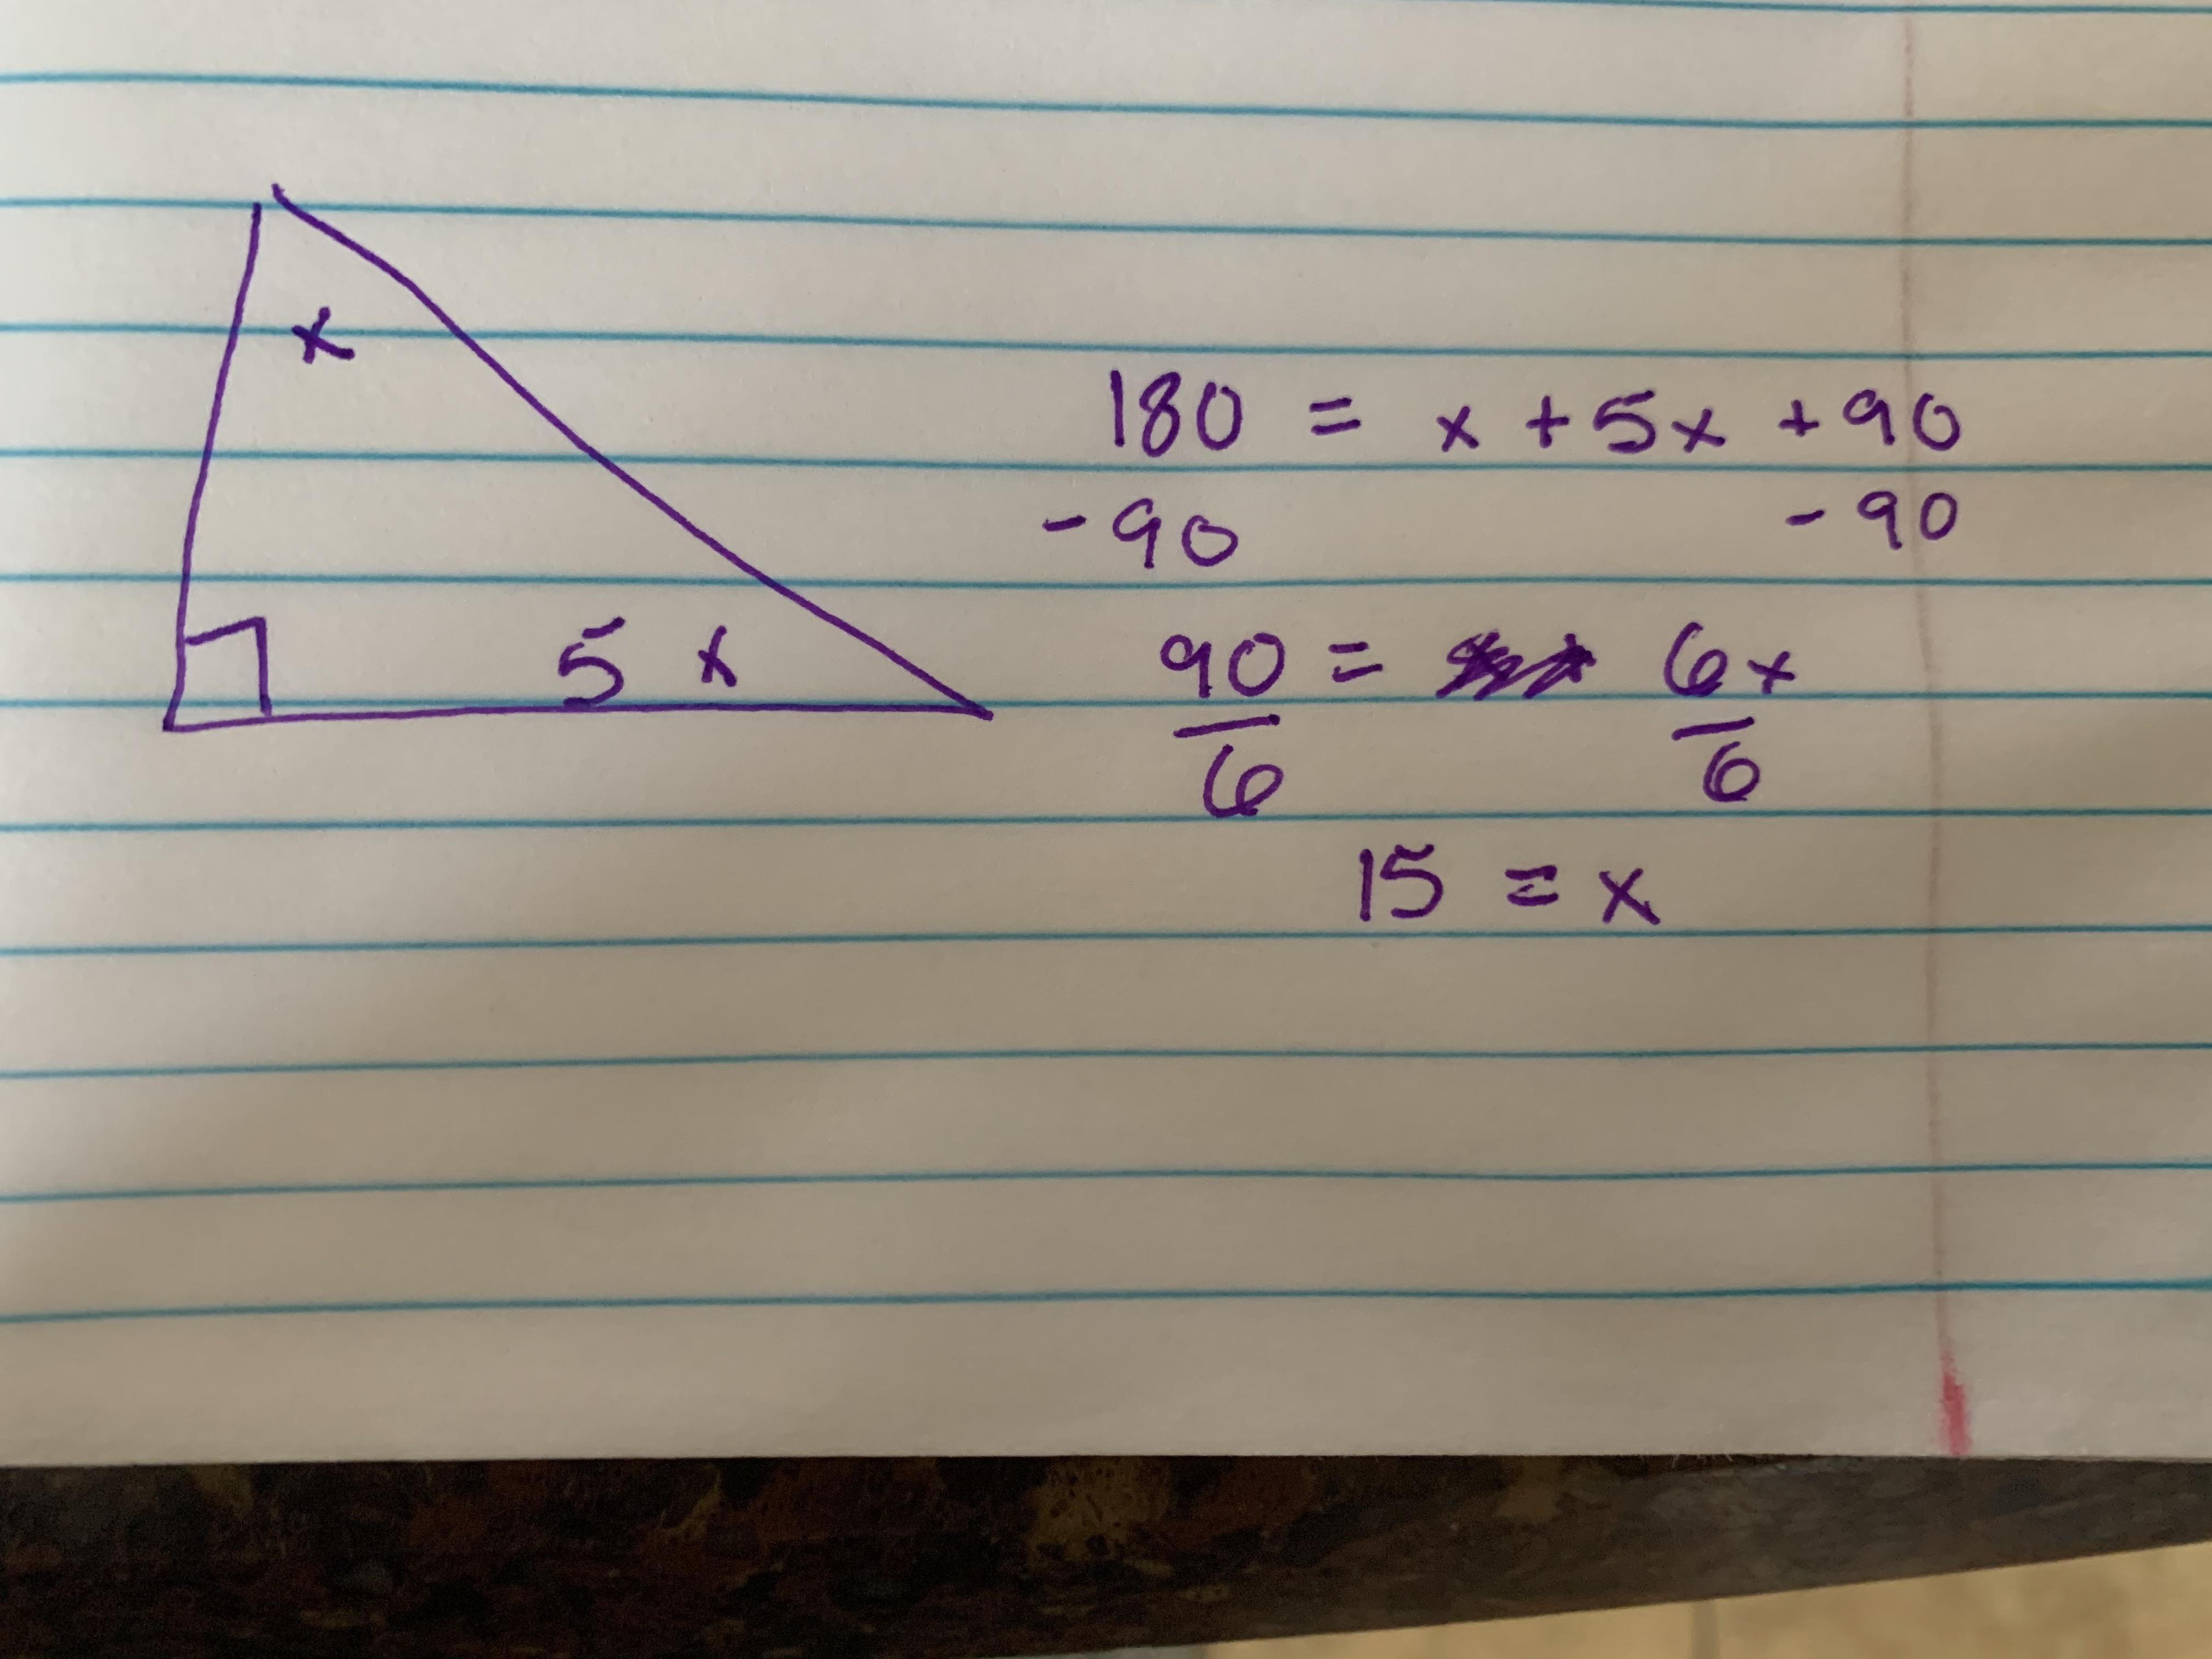 x
5 x
180 = x + 5x + 90
- 90 - 90
90 = 6x
6 6
15 = x